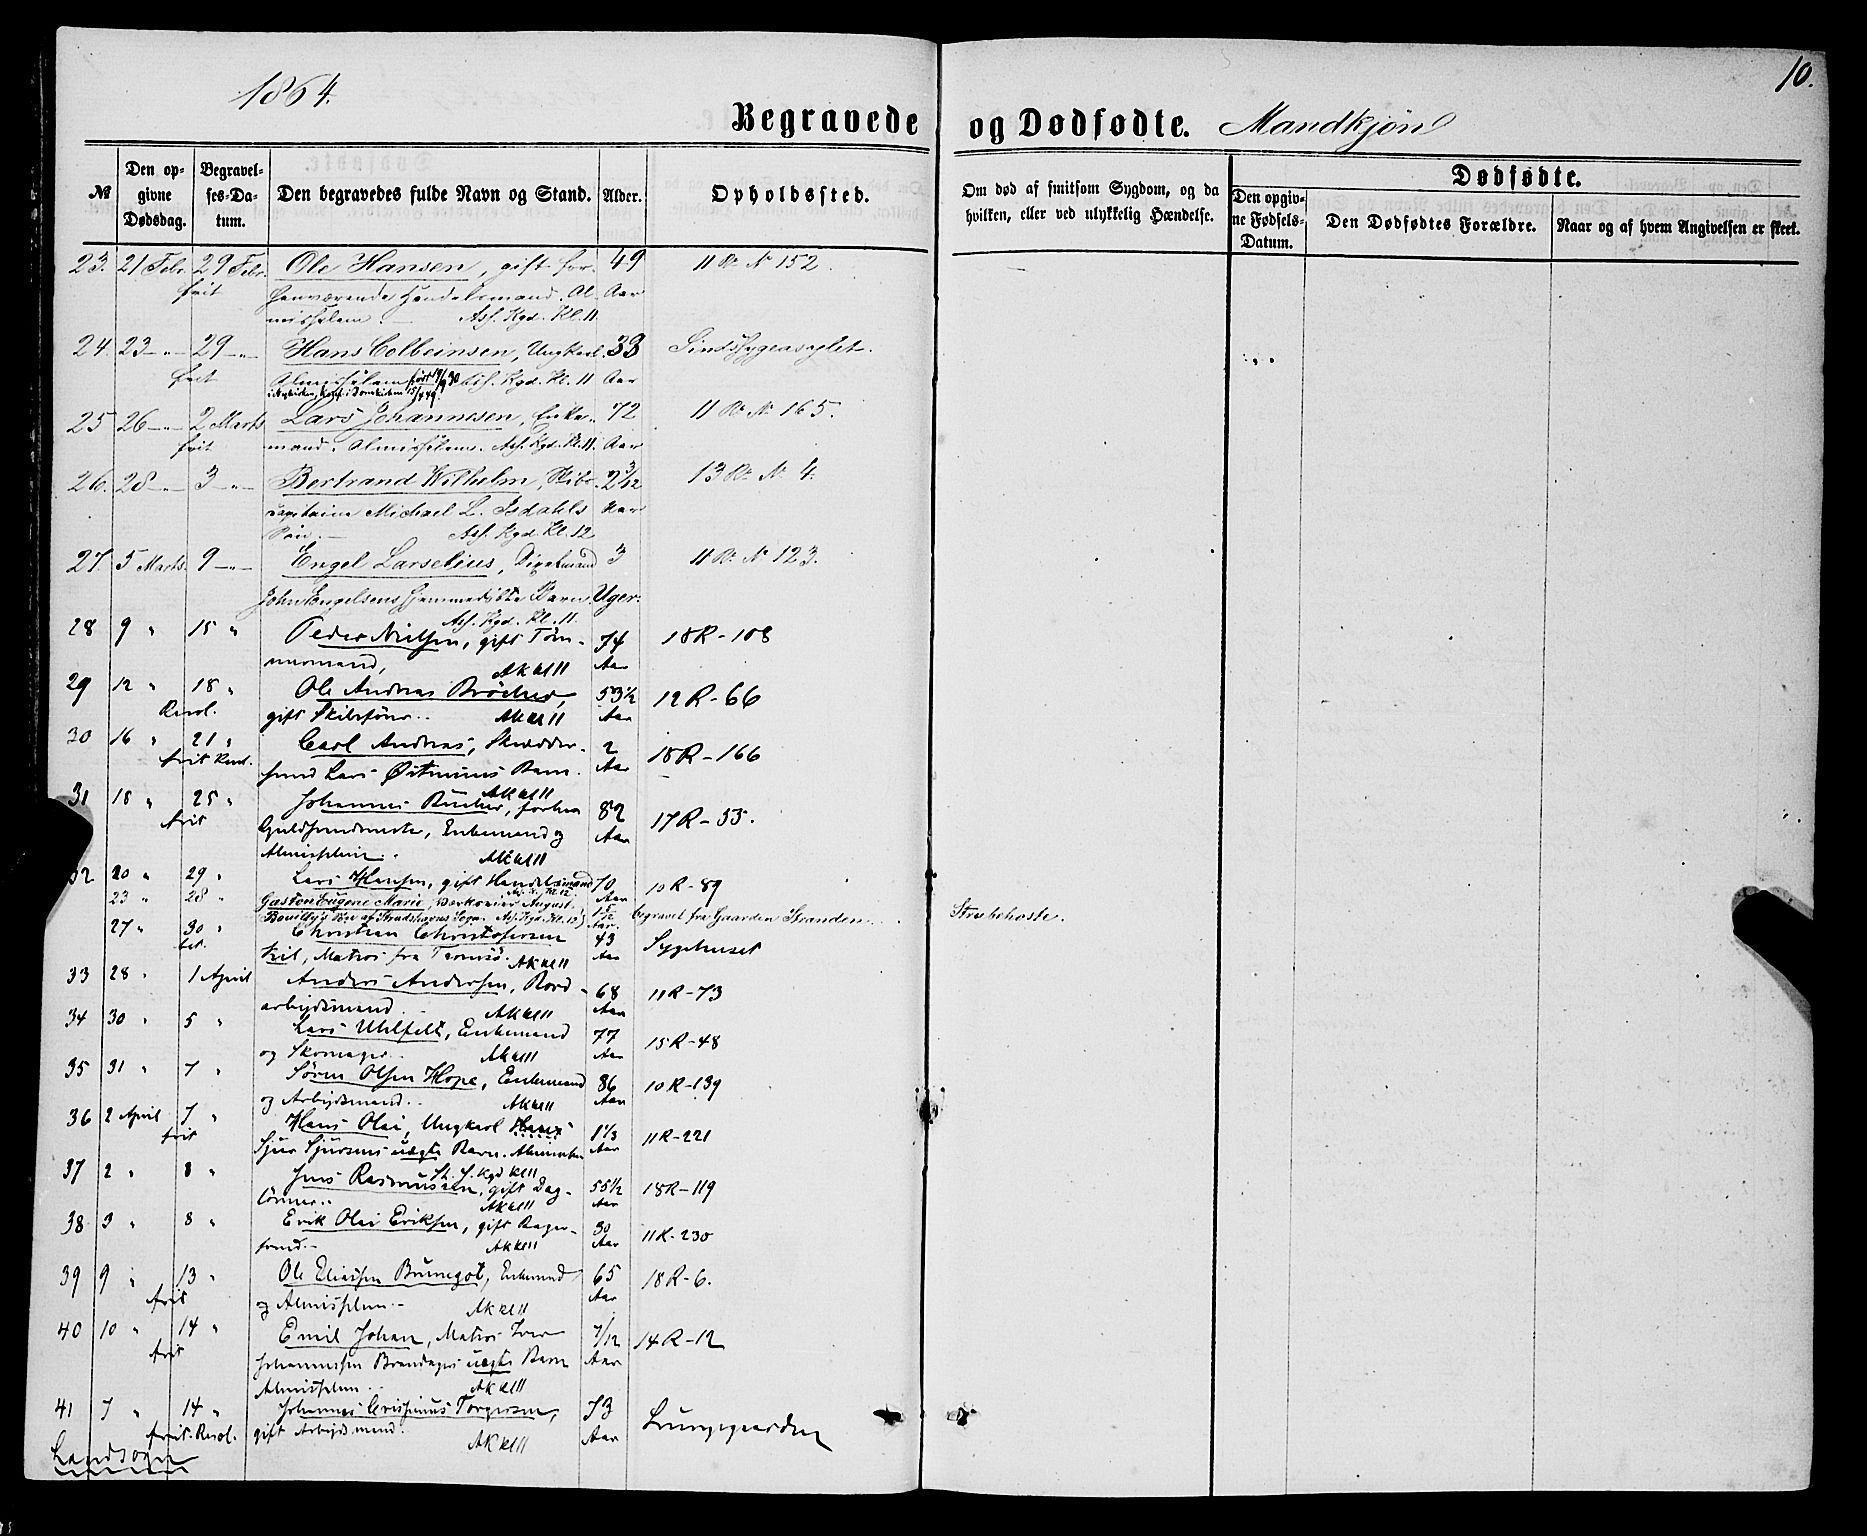 1864.
10.
Begravede og Dødfødte. Mandkjøn
№
Den opgivne Dødsdag.
Begravelses-Datum.
Den begravedes fulde Navn og Stand.
Alder.
Opholdssted.
Om død af smitsom Sygdom, og da hvilken, eller ved ulykkelig Hændelse.
Dødfødte.
Den opgivne Fødsels-Datum.
Den Dødfødtes Forældre.
Naar og af hvem Angivelsen er skeet.
23. 21 Febr. 29 Febr. Ole Hansen, gift for- 49 11 R. № 152.
frit henværende Handelsmand. Al- Aar
misselem. Ass. Kgd. Kl. 11
24. 23 -"- 29 -"- Hans Colbeinsen, Ungkarl. 33 Sindssygeasylet.
frit Almisselem Ass. Kgd. Kl. 11 Aar
25 26 -"- 2 Marts Lars Johannesen, Enke- 72 11 R. № 165.
frit mand. Almisselem. Ass. Kgd. Kl. 11. Aar
26. 28 -"- 3 -"- Bertrand Wilhelm, Skibs- 2 3/12 13 R. № 4.
capitaine Michael L. Isdahls Aar
Søn. Ass. Kgd. Kl. 12
27. 5 Marts. 9 -"- Engel Larselius, 3 11 R. № 123.
John Engelsens hjemmedøbte Barn. Uger.
Ass. Kgd. Kl. 11.
28 9 " 15 " Peder Nielsen, gift Tøm- 74 18 R - 108
mermand, A K kl 11 Aar
29 12 " 18 " Ole Andreas Bröcher, 53½ 12 R - 66
gift A K kl 11 Aar
30 16 " 21 " Carl Andreas, Skrædder- 2 18 R - 166
frit svend Lars Barn. Aar
A K kl 11
31 18 " 25 " Johannes Bucher, forhen 82 17 R - 33.
frit Guldsmedmester, Enkemand og Aar
Almisselem. A K kl 11
32 20 " 29 " Lars Hansen, gift Handelsmand 70 10 R - 89
Ass. K. Kl. 12 Aar
23 " 28 " Gaston Eugene Marie, August
Søn af Sogn. Ass. Kgd. Kl. 12) Aar. begravet fra Gaarden Stranden. Strubehoste.
27 " 30 " Christian Christofersen 43 Sygehuset
Matros fra Tromsö. A K kl 11 Aar
33 28 " 1 April Anders Andersen, Jord- 68 11 R - 73
arbeidsmand. A K kl 11 Aar
34 30 " 5 " Lars Uhlfelt, Enkemand 77 15 R - 48
og Skomager. A K kl 11 Aar
35 31 " 7 " Sören Olsen Hope, Enkemand 86 10 R - 139
og Arbeidsmand. A K kl 11 Aar
36 2 April 7 " Hans Olai, Ungkarl 1 1/3 11 R - 221
frit Sjur Sjursens uægte Barn. Aar
St. J. Kgd kl 11
37 2 " 8 " Jens Rasmussen, gift Dag- 55½ 18 R - 119
lönner. A K kl 11 Aar
38 3 " 8 " Erik Olai Eriksen, gift Bager- 30 11 R - 230
svend. A K kl 11 Aar
39 9 " 13 " Ole Eliassen, Enkemand 65 18 R - 6.
frit og Almisselem. A K kl 11 Aar
40 10 " 14 " Emil Johan, Matros Iver 7/12 14 R - 12
frit Johannessen uægte Barn Aar
Almisselem. A K kl 11
41 7 " 14 " Johannes Crispinus Torgersen, 73 Lungegaarden
frit. gift Arbeidsmand. A K kl 11 Aar
Landsogn